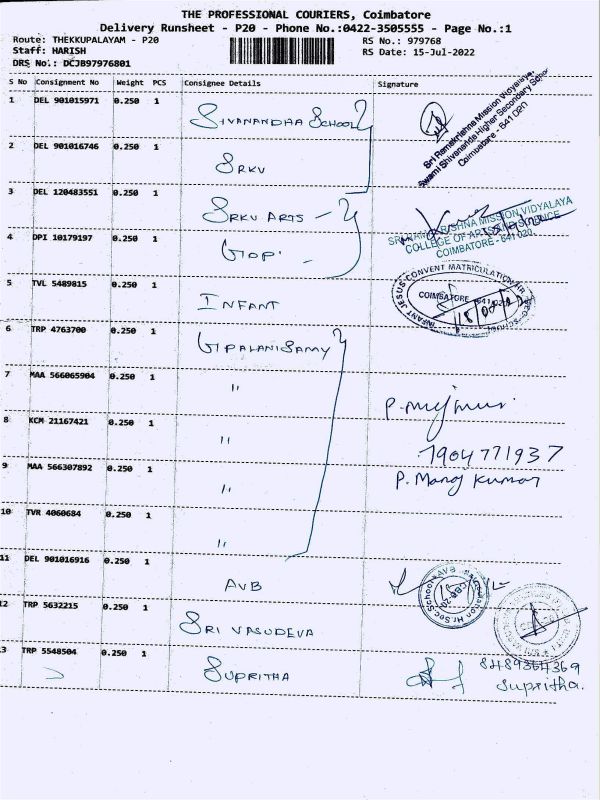 THE PROFESSIONAL COURIERS, Coimbatore
Delivery Runsheet - P20 - Phone No.:0422-3505555 - Page No.:1
Route: THEKKUPALAYAM - P20 RS No.: 979768
Staff: HARISH RS Date: 15-Jul-2022
DRS No.: DCJB97976801
S No Consignment No Weight PCS Consignee Details Signature
1 DEL 901015971 0.250 1 SIVANANDHA SCHOOL
Sri Ramakrishna Mission Vidyalaya,
Swami Shivananda Higher Secondary School
Coimbatore - 641 020
2 DEL 901016746 0.250 1 SRKV
3 DEL 120483551 0.250 1 SRKV ARTS
SRI RAMAKRISHNA MISSION VIDYALAYA
COLLEGE OF ARTS & SCIENCE
COIMBATORE - 641 020.
4 DPI 10179197 0.250 1 GOPI
5 TVL 5489815 0.250 1 INFANT
INFANT JESUS CONVENT MATRICULATION HR. SEC. SCHOOL
COIMBATORE 641 020
6 TRP 4763700 0.250 1 GOPALANISAMY
7 MAA 566065904 0.250 1 "
8 KCM 21167421 0.250 1 "
7904771937
9 MAA 566307892 0.250 1 "
P. Manoj Kumar
10 TVR 4060684 0.250 1 "
11 DEL 901016916 0.250 1 AVB
12 TRP 5632215 0.250 1 SRI VASUDEVA
13 TRP 5548504 0.250 1 SUPRITHA
8489364369
Supritha.